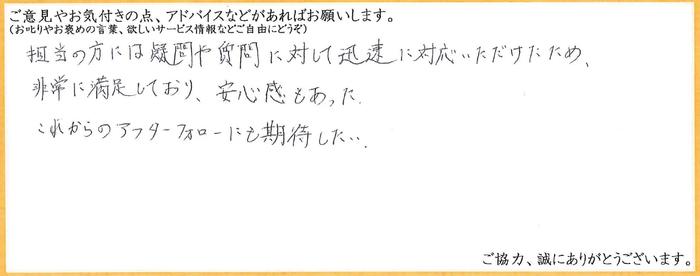 ご意見やお気付きの点、アドバイスなどがあればお願いします。
(お叱りやお褒めの言葉、欲しいサービス情報などご自由にどうぞ)
担当の方には疑問や質問に対して迅速に対応いただけたため、
非常に満足しており、安心感もあった.
これからのアフターフォローにも期待したい.
ご協力、誠にありがとうございます。